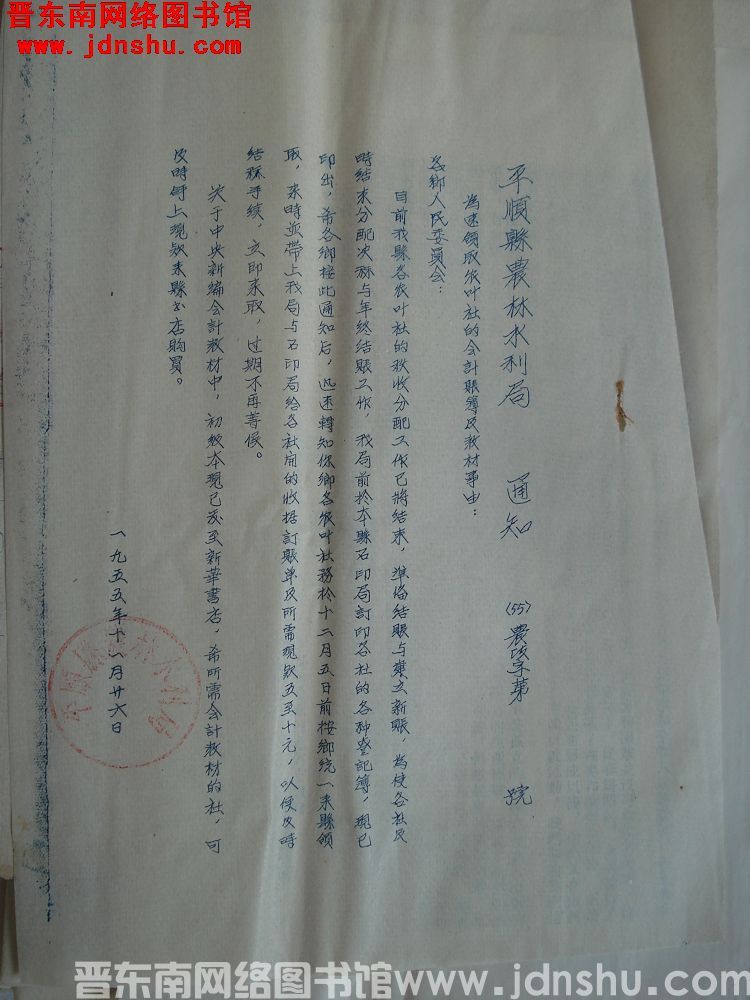 晋东南网络图书馆
www.jdnshu.com
平順縣農林水利局 通知 (55)農政字第 号
為速領取农叶社的会計賬簿及教材事由：
各鄉人民委員会：
目前我縣各农叶社的秋收分配工作已將结束，準俻结賬与建立新賬，為使各社及
時结束分配决祘与年终结賬工作，我局前於本縣石印局訂印各社的各种登記簿，現已
印出，希各鄉接此通知后，迅速轉知你鄉各农叶社務於十二月五日前按鄉統一来縣領
取，来時並帶上我局与石印局給各社开的收据訂賬单及所需現款五至十元，以便及時
结祘手续，立即来取，过期不再等候。
关于中央新编会計教材中，初级本現已发至新華書店，希所需会計教材的社，可
及時帶上現款来縣书店购買。
一九五五年十一月廿六日
平順縣農林水利局
晋东南网络图书馆www.jdnshu.com